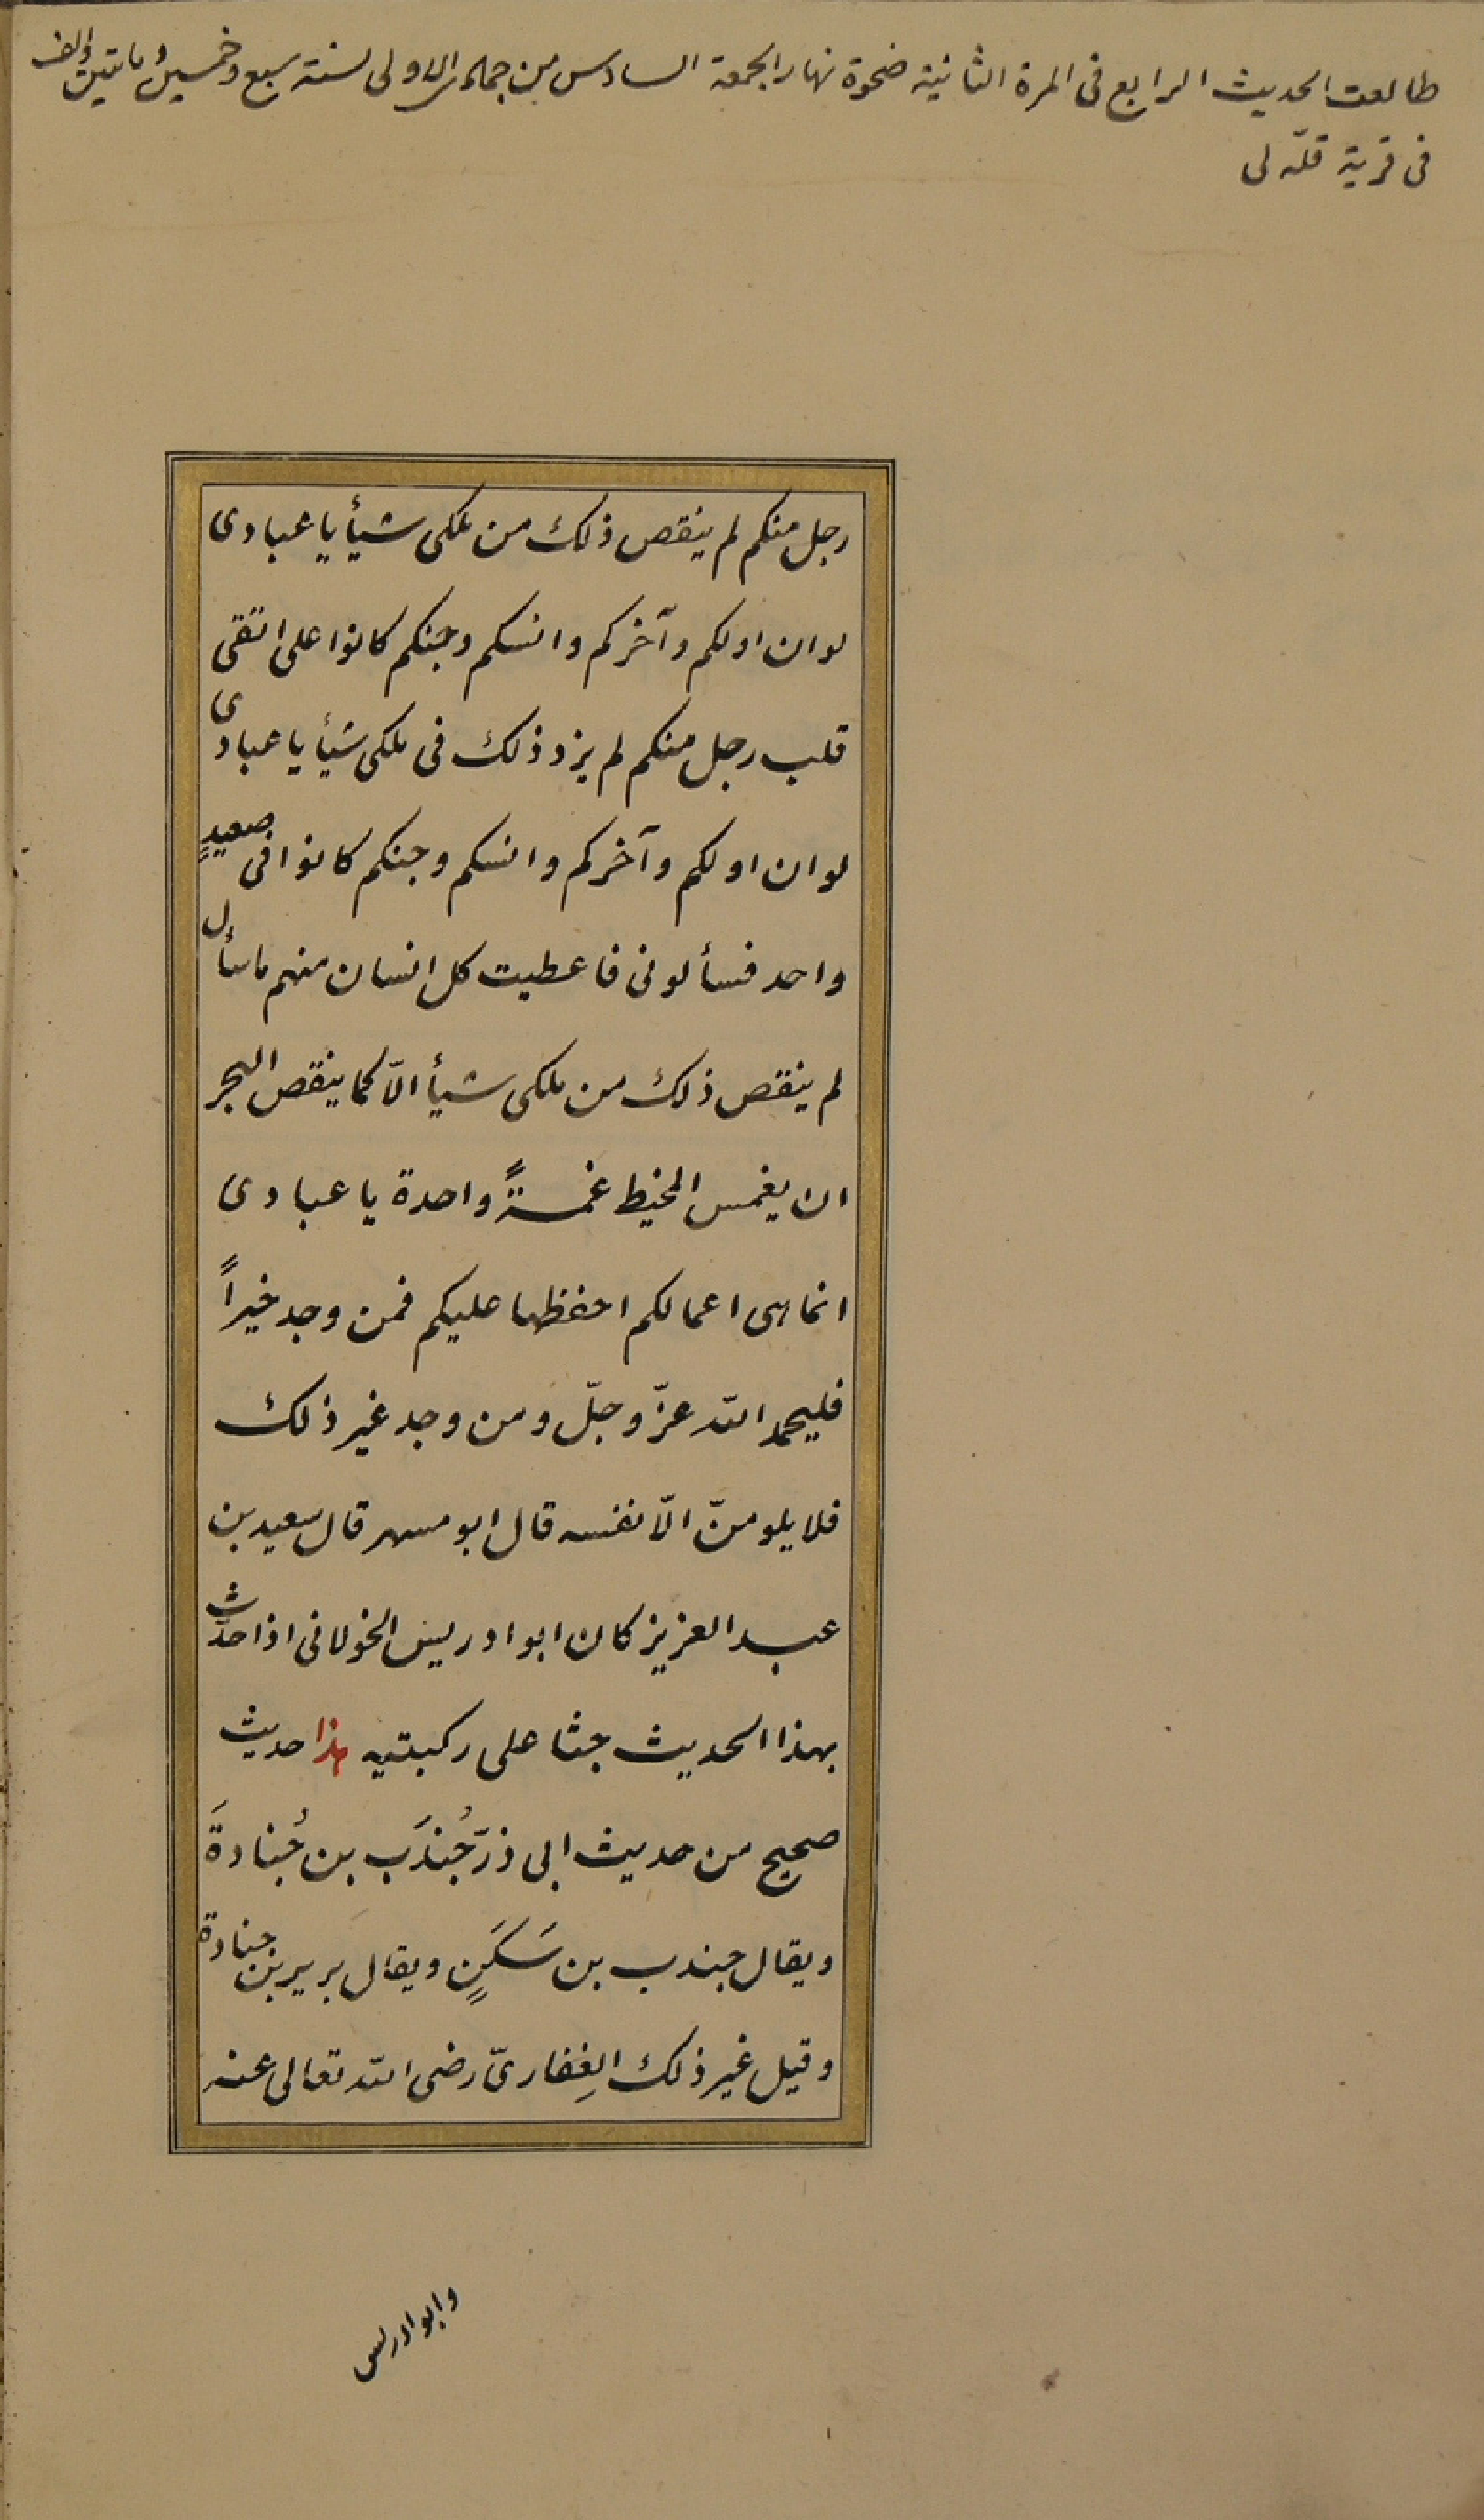 طالعت الحديث الرابع فى المرة الثانية ضحوة نهار الجمعة السادس من جمادى الاولى لسنة سبع وخمسين وماتين والف
فى قرية قلّه لى
رجل منكم لم ينقص ذلك من ملكى شيأ يا عبادى
لو ان اولكم وآخركم وانسكم وجنكم كانوا على اتقى
قلب رجل منكم لم يزد ذلك فى ملكى شيأ يا عبادى
لو ان اولكم وآخركم وانسكم وجنكم كانوا فى صعيدٍ
واحد فسألونى فاعطيت كل انسان منهم ما سأل
لم ينقص ذلك من ملكى شيأ الّا كما ينقص البحر
ان يغمس المخيط غمسةً واحدة يا عبادى
انما هى اعمالكم احفظها عليكم فمن وجد خيراً
فليحمد الله عزّ وجلّ ومن وجد غير ذلك
فلا يلومنّ الّا نفسه قال ابو مسهر قال سعيد بن
عبد العزيز كان ابو ادريس الخولانى اذا حدّث
بهذا الحديث جثا على ركبتيه هذا حديث
صحيح من حديث ابى ذرّ جُندَب بن جُنادةَ
ويقال جندب بن سَكَنٍ ويقال برير بن جنادة
وقيل غير ذلك الغِفارىّ رضى الله تعالى عنه
وابو ادريس